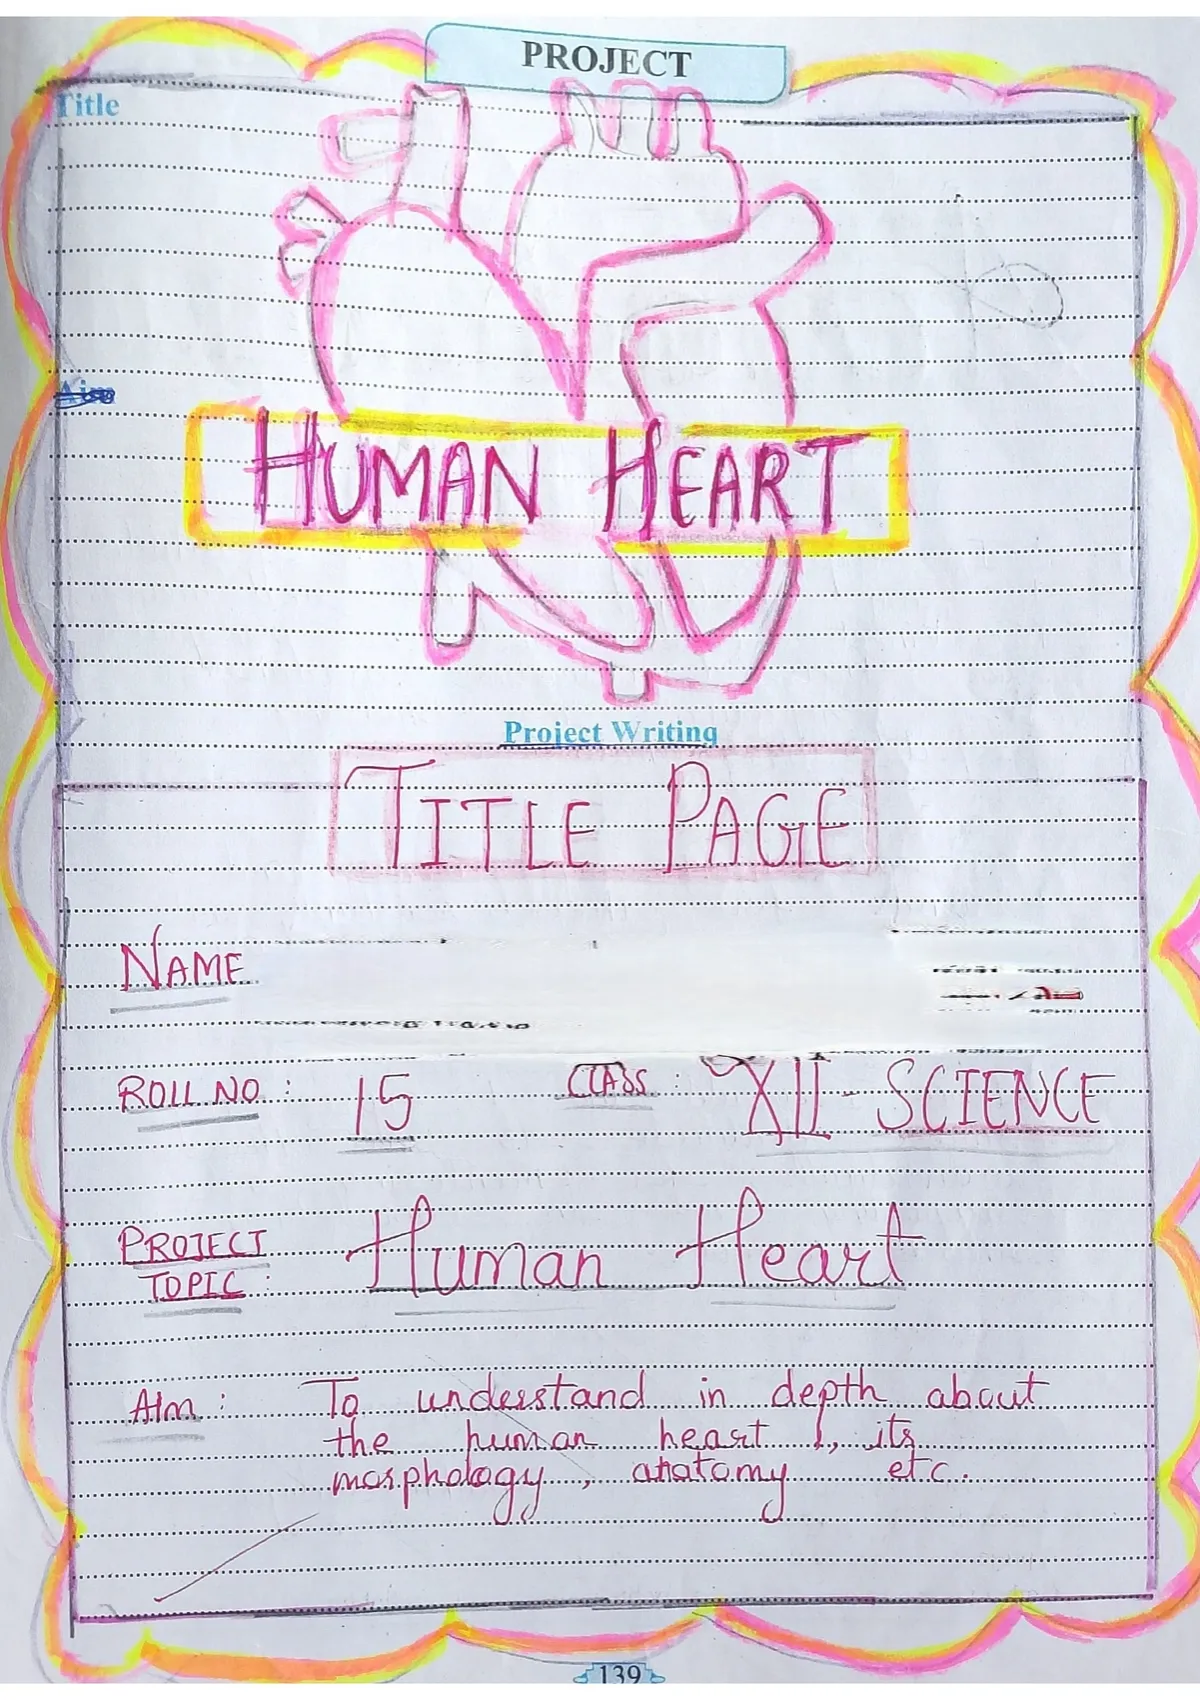 PROJECT
Title
Aim
HUMAN HEART
Project Writing
TITLE PAGE
NAME
ROLL NO : 15 CLASS : XII - SCIENCE
PROJECT Human Heart
TOPIC :
AIM : To understand in depth about
the human heart, its
morphology, anatomy etc.
139